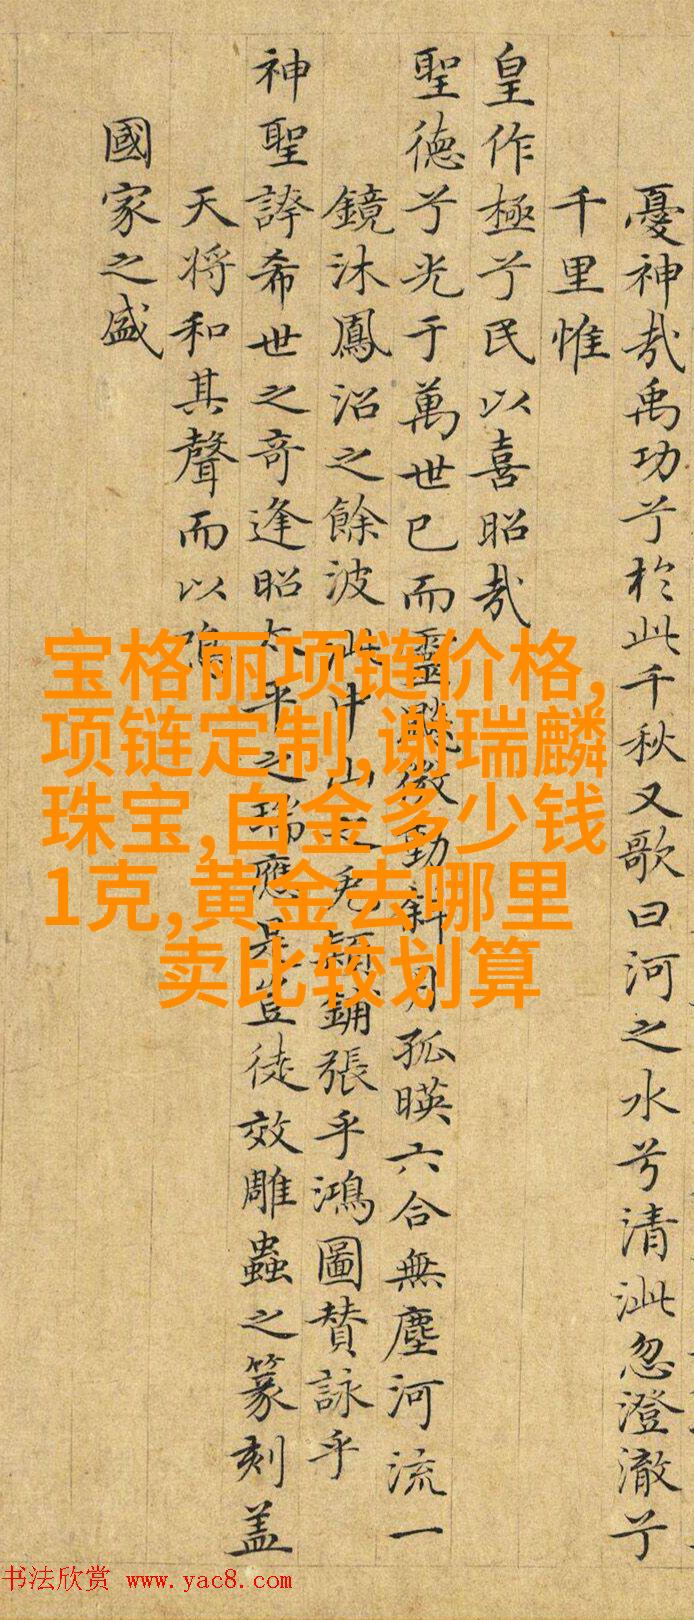 憂神哉禹功兮於此千秋又歌曰河之水兮清泚忽澄澈兮
千里惟
皇作極兮民以喜昭哉
聖德兮光于萬世已而靈飈微動斜月孤暎六合無塵河流一
鏡沐鳳沼之餘波泚中山之免穎鋪張乎鴻圖贊詠乎
神聖誇希世之奇逢昭太平之瑞應是豈徒效雕蟲之篆刻盖
天将和其聲而以鳴
國家之盛
宝格丽项链价格,
项链定制,谢瑞麟
珠宝,白金多少钱
1克,黄金去哪里
卖比较划算
书法欣赏 www.yac8.com